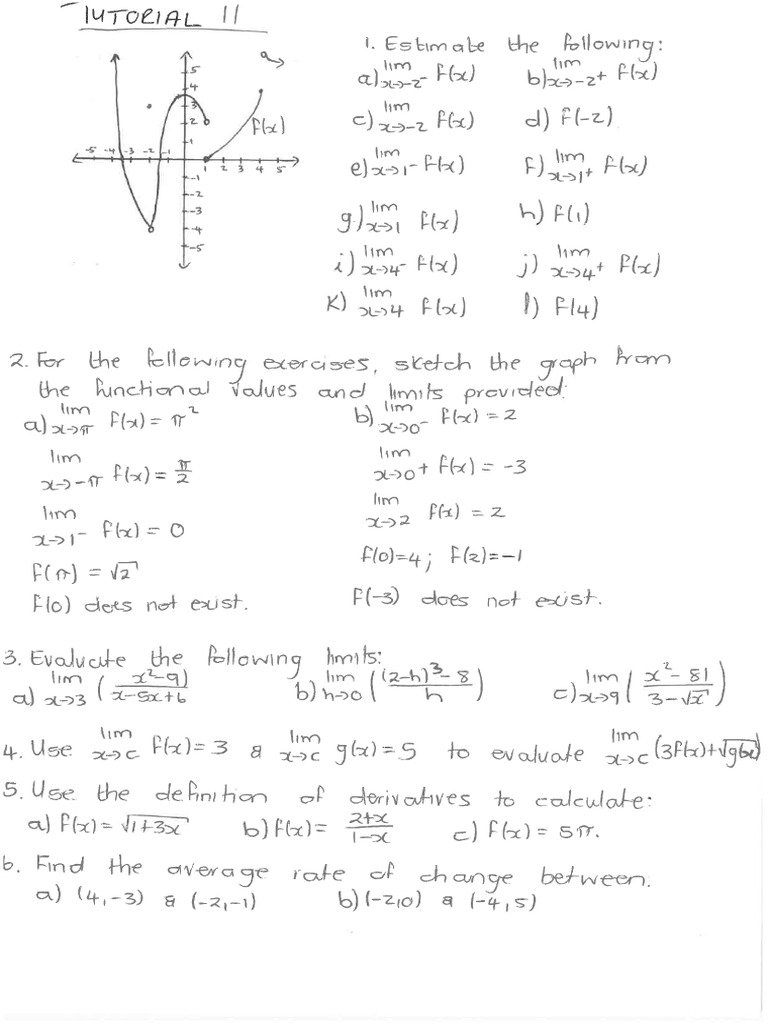 TUTORIAL 11
5
4
3
2
1
-5 -4 -3 -2 -1 1 2 3 4 5
-1
-2
-3
-4
-5
f(x)
1. Estimate the following:
a) lim x→-2⁻ f(x) b) lim x→-2⁺ f(x)
c) lim x→-2 f(x) d) f(-2)
e) lim x→1⁻ f(x) f) lim x→1⁺ f(x)
g) lim x→1 f(x) h) f(1)
i) lim x→4⁻ f(x) j) lim x→4⁺ f(x)
k) lim x→4 f(x) l) f(4)
2. For the following exercises, sketch the graph from
the functional values and limits provided:
a) lim x→π f(x) = π² b) lim x→0⁻ f(x) = 2
lim x→-π f(x) = π/2 lim x→0⁺ f(x) = -3
lim x→1⁻ f(x) = 0 lim x→2 f(x) = 2
f(π) = √2 f(0)=4; f(2)=-1
f(0) does not exist. f(-3) does not exist.
3. Evaluate the following limits:
a) lim x→3 ((x²-9)/(x-5x+6) b) lim h→0 (((2-h)³-8)/h) c) lim x→9 ((x²-81)/(3-√x))
4. Use lim x→c f(x)=3 & lim x→c g(x)=5 to evaluate lim x→c (3f(x)+√g(x)
5. Use the definition of derivatives to calculate:
a) f(x)=√1+3x b) f(x)= (2+x)/(1-x) c) f(x)=5π.
6. Find the average rate of change between:
a) (4,-3) & (-2,-1) b) (-2,0) & (-4,5)